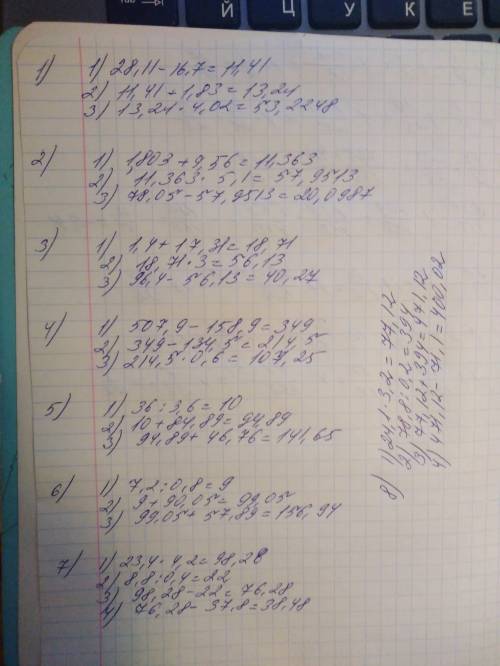 Й Ц У К Е
1) 1) 28,11 - 16,7 = 11,41
2) 11,41 + 1,83 = 13,24
3) 13,24 · 4,02 = 53,2248
2) 1) 1,803 + 9,56 = 11,363
2) 11,363 · 5,1 = 57,9513
3) 78,05 - 57,9513 = 20,0987
3) 1) 1,4 + 17,31 = 18,71
2) 18,71 · 3 = 56,13
3) 96,4 - 56,13 = 40,27
4) 1) 507,9 - 158,9 = 349
2) 349 - 134,5 = 214,5
3) 214,5 · 0,6 = 107,25
5) 1) 36 : 3,6 = 10
2) 10 + 84,89 = 94,89
3) 94,89 + 46,76 = 141,65
6) 1) 7,2 : 0,8 = 9
2) 9 + 90,05 = 99,05
3) 99,05 + 57,89 = 156,94
7) 1) 23,4 · 4,2 = 98,28
2) 8,8 : 0,4 = 22
3) 98,28 - 22 = 76,28
4) 76,28 - 37,8 = 38,48
8) 1) 24,1 · 3,2 = 77,12
2) 78,8 : 0,2 = 394
3) 77,12 + 394 = 471,12
4) 471,12 - 71,1 = 400,02